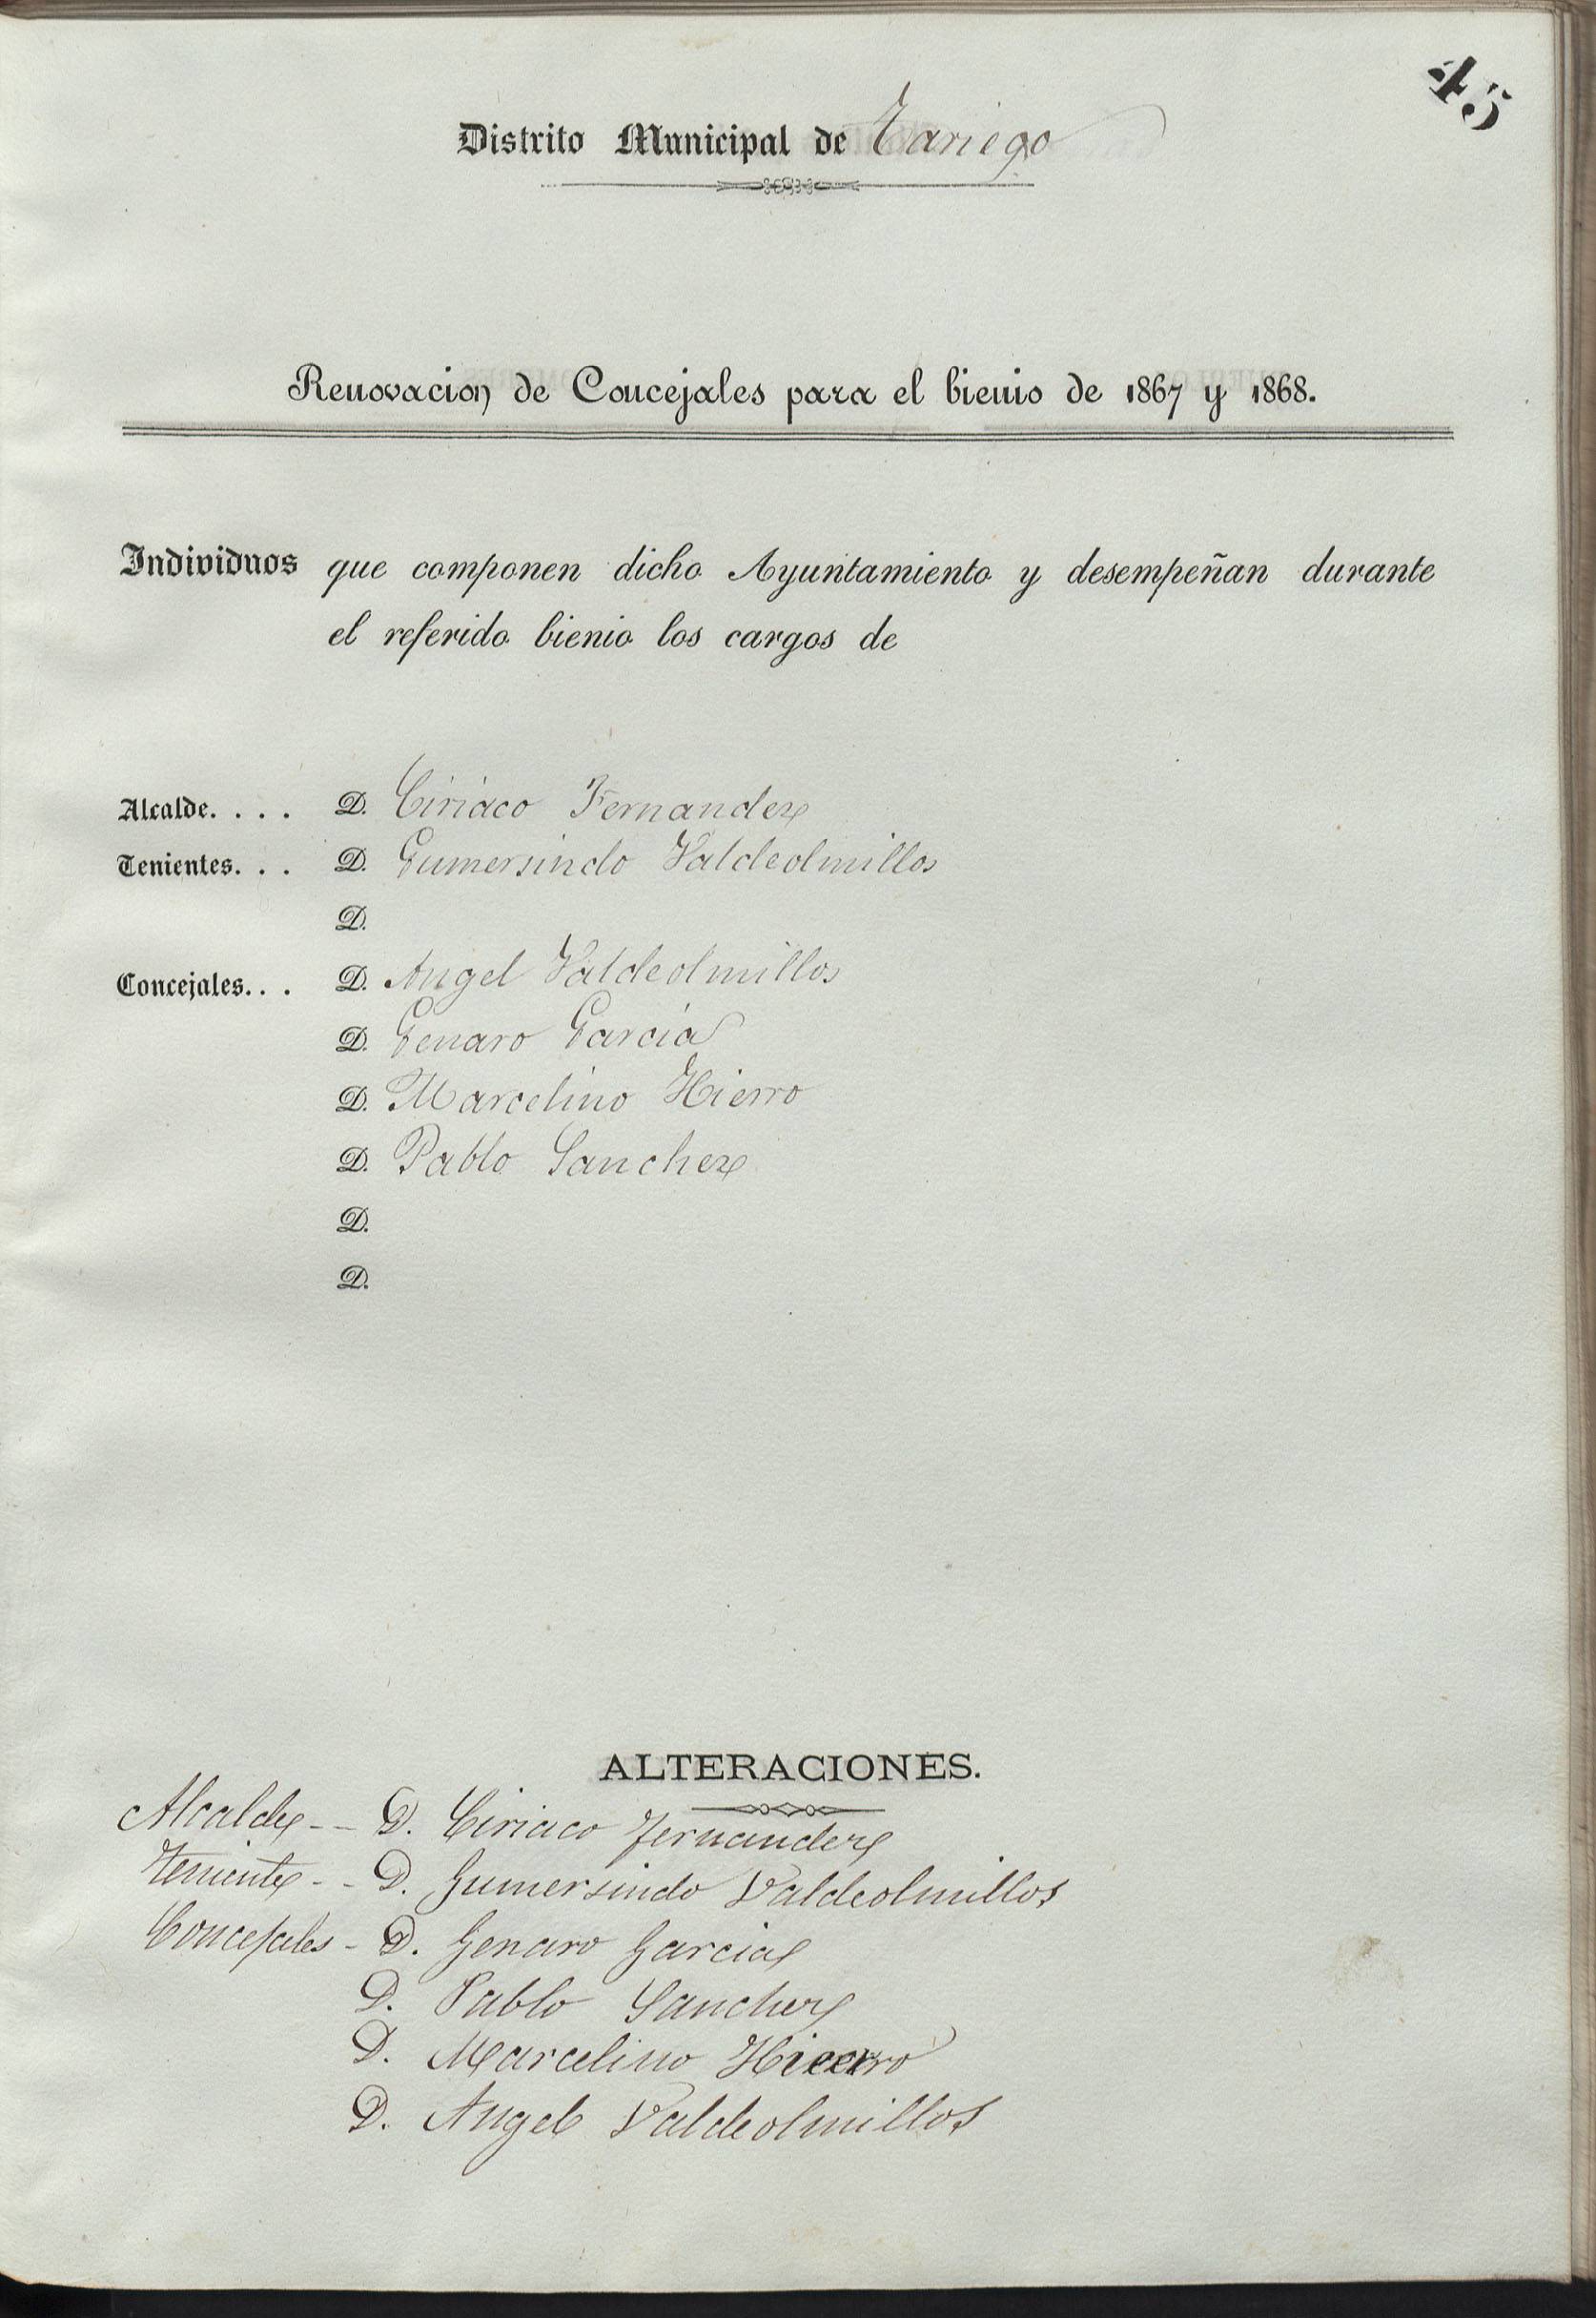 45
Distrito Municipal de Tariego
Renovacion de Concejales para el bienio de 1867 y 1868.
Individuos que componen dicho Ayuntamiento y desempeñan durante
el referido bienio los cargos de
Alcalde. . . . D. Ciriaco Fernandez
Tenientes. . . D. Gumersindo Valdeolmillos
D.
Concejales. . . D. Angel Valdeolmillos
D. Genaro Garcia
D. Marcelino Hierro
D. Pablo Sanchez
D.
D.
ALTERACIONES.
Alcalde -- D. Ciriaco Fernandez
Teniente -- D. Gumersindo Valdeolmillos
Concejales - D. Genaro Garcia
D. Pablo Sanchez
D. Marcelino Hierro
D. Angel Valdeolmillos